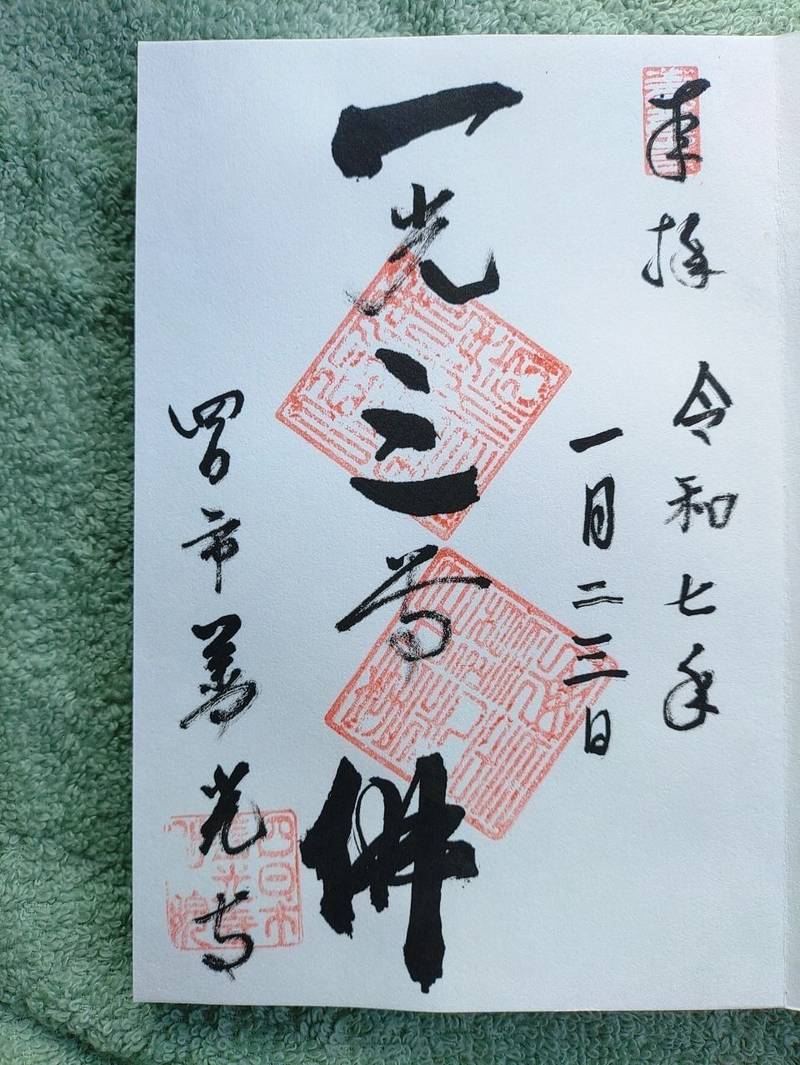 奉拝 令和七年
一月二三日
一光三尊佛
四日市善光寺